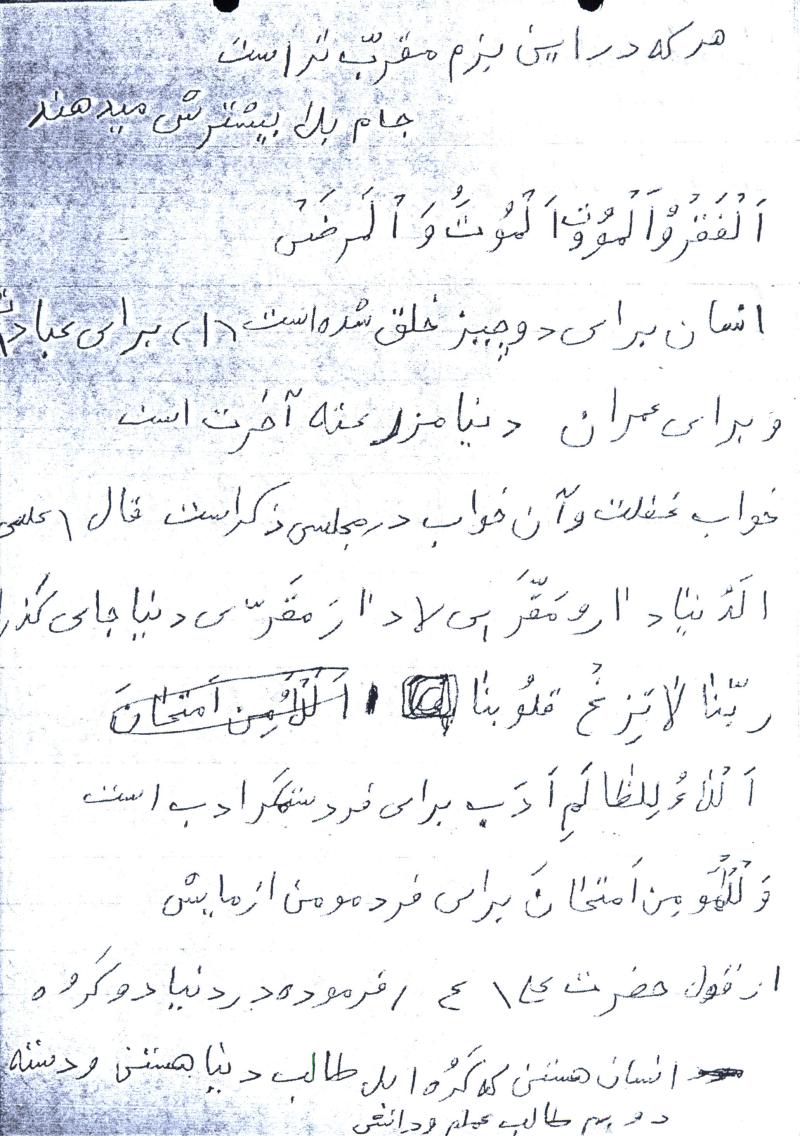 هر که در این بزم مقرّب تر است
جام بلا بیشترش میدهند
اَلْفَقْرُ وَاَلْمُوْت اَلْمُوْتَُ وَ اْلَمرضَْ
انسان برای دو چیز خلق شده است (۱) برای عبادت
و برای عمران دنیا مزرعته آخرت است
خواب غفلت و آن خواب در مجلسی ذکر است قال
الَدُنیاد ار و مَقَّرَ لا د ار مَقَرّ دنیا جای
ربّنا لا تِزِغْ قلُوبنا
اَلْلاءُ لِلظالَمِ اَدَب برای فرد ستمگر ادب است
وَ لْلْمُو مِن اَمتحانَ برای فرد مومن ازمایش
از قول حضرت علی ع فرموده در دنیا دو کروه
انسان هستن که کَرُه اول طالب دنیا هستن و دسته
دویم طالب علم و دانش